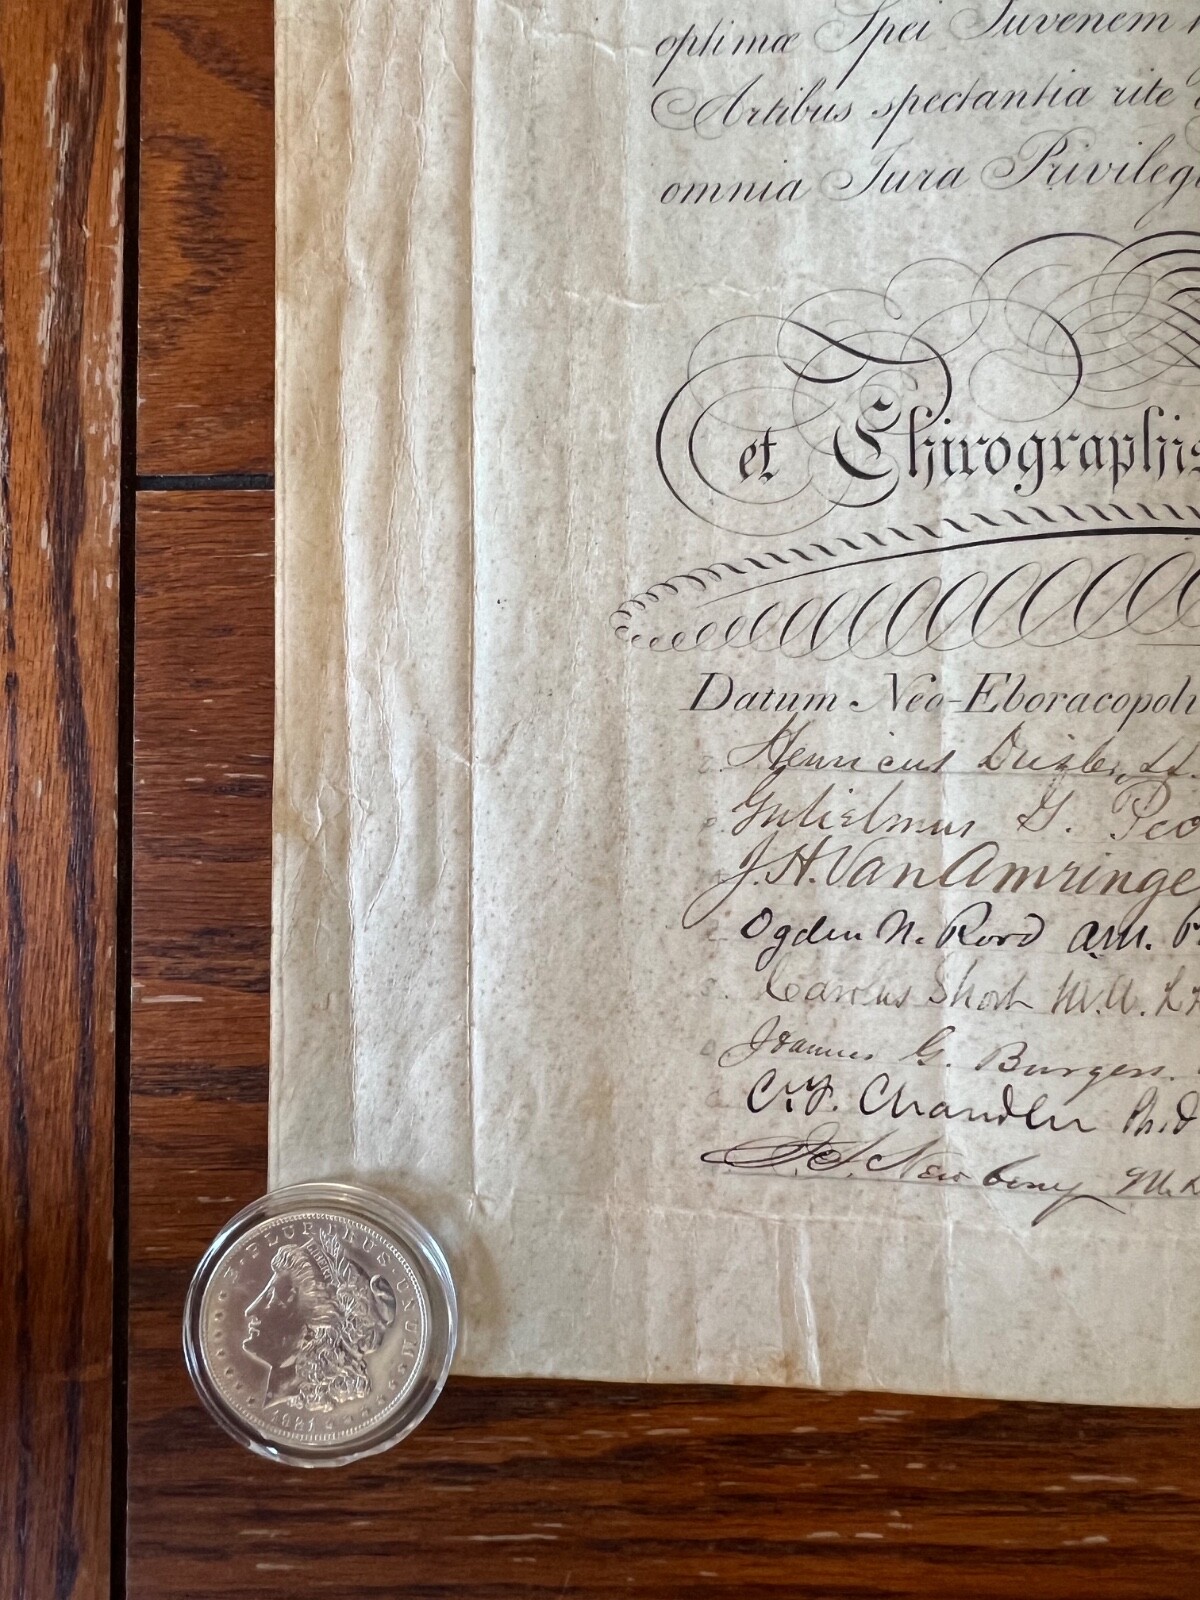 optimæ Spei Juvenem
Artibus spectantia rite
omnia Jura Privilegi
et Chirographis
Datum Neo-Eboracopoli
Henricus Drisler, LL.
Gulielmus G. Pec
J. H. Van Amringe
Ogden N. Rood a.m. P
Carolus Short M.A. LL
Joannes G. Burgess.
C. F. Chandler Ph.D
J. S. Newberry M.D
E·PLURIBUS·UNUM
LIBERTY
1921